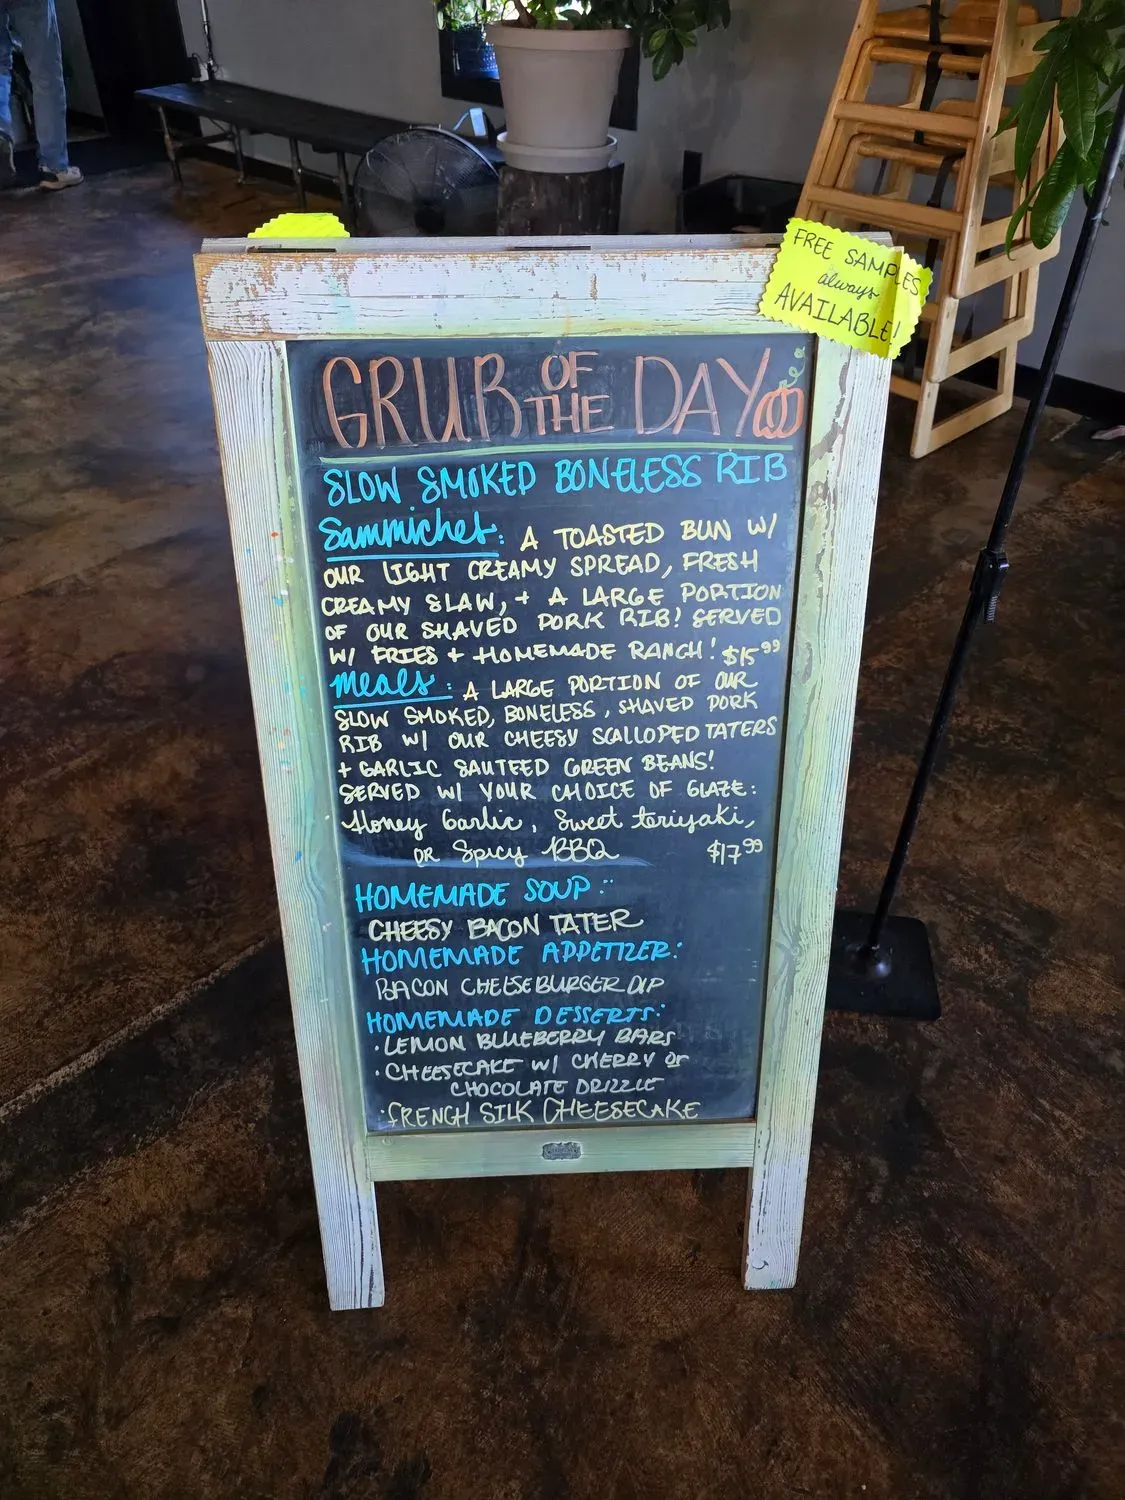 FREE SAMPLES
always
AVAILABLE!
GRUB OF THE DAY
SLOW SMOKED BONELESS RIB
Sammiches: A TOASTED BUN W/
OUR LIGHT CREAMY SPREAD, FRESH
CREAMY SLAW, + A LARGE PORTION
OF OUR SHAVED PORK RIB! SERVED
W/ FRIES + HOMEMADE RANCH! $15.99
Meals: A LARGE PORTION OF OUR
SLOW SMOKED, BONELESS, SHAVED PORK
RIB W/ OUR CHEESY SCALLOPED TATERS
+ GARLIC SAUTEED GREEN BEANS!
SERVED W/ YOUR CHOICE OF GLAZE:
Honey Garlic, Sweet teriyaki,
OR Spicy BBQ $17.99
HOMEMADE SOUP:
CHEESY BACON TATER
HOMEMADE APPETIZER:
BACON CHEESEBURGER DIP
HOMEMADE DESSERTS:
• LEMON BLUEBERRY BARS
• CHEESECAKE W/ CHERRY or
CHOCOLATE DRIZZLE
• FRENCH SILK CHEESECAKE